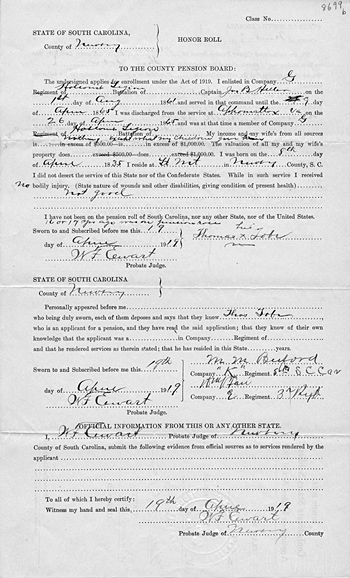 Class No.
8699
6
STATE OF SOUTH CAROLINA,
HONOR ROLL
County of Newberry
TO THE COUNTY PENSION BOARD:
The undersigned applies for enrollment under the Act of 1919. I enlisted in Company G
Regiment of Holcombe Legion Battalion of Captain
1st day of Aug 1861 and served in that command until the 9 day of
April 1865 I was discharged from the service at Appomattox Va
26 day of April 1865 and was at that time a member of Company G
Regiment of Holcombe Legion My income and wife's from all sources
is in excess of $500.00—is in excess of $1,000.00. The valuation of all my and my wife's
property does exceed $500.00—does exceed $1,000.00. I was born on the 8th day
of April 1835 I reside at St in Newberry County, S. C.
I did not desert the service of this State nor of the Confederate States. While in such service I received
No bodily injury. (State nature of wounds and other disabilities, giving condition of present health)
Not good
I have not been on the pension roll of South Carolina, nor any other State, nor of the United States.
Sworn to and Subscribed before me this 19
day of April 1919
W F Ewart
Probate Judge.
STATE OF SOUTH CAROLINA
County of Newberry
Personally appeared before me
who being duly sworn, each of them deposes and says that they knew
who is an applicant for a pension, and they have read the said application; that they know of their own
knowledge that the applicant was a in Company Regiment of
and that he rendered services as therein stated; that he has resided in this State years.
Sworn to and Subscribed before me this 19th
M. M. Buford
Company "K" Regiment 5th S.C. Cav
day of April 1919
W F Ewart
Company E Regiment 3rd
Probate Judge.
OFFICIAL INFORMATION FROM THIS OR ANY OTHER STATE.
I, W F Ewart Probate Judge of Newberry
County of South Carolina, submit the following evidence from official sources as to services rendered by
the applicant
To all of which I hereby certify:
Witness my hand and seal this, 19th day of April 1919
W F Ewart
Probate Judge of Newberry County